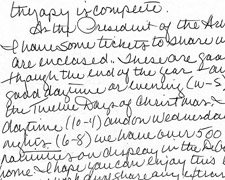 therapy is complete.
As the President of the
I have some tickets to share w
are enclosed. These are good
though the end of the year. 
good daytime or evening (
the Twelve Days of Christmas.
daytime (10-4) and on Wednesda
nights (6-8) we have over 500
nativities on display in the
home. I hope you can enjoy this
share any